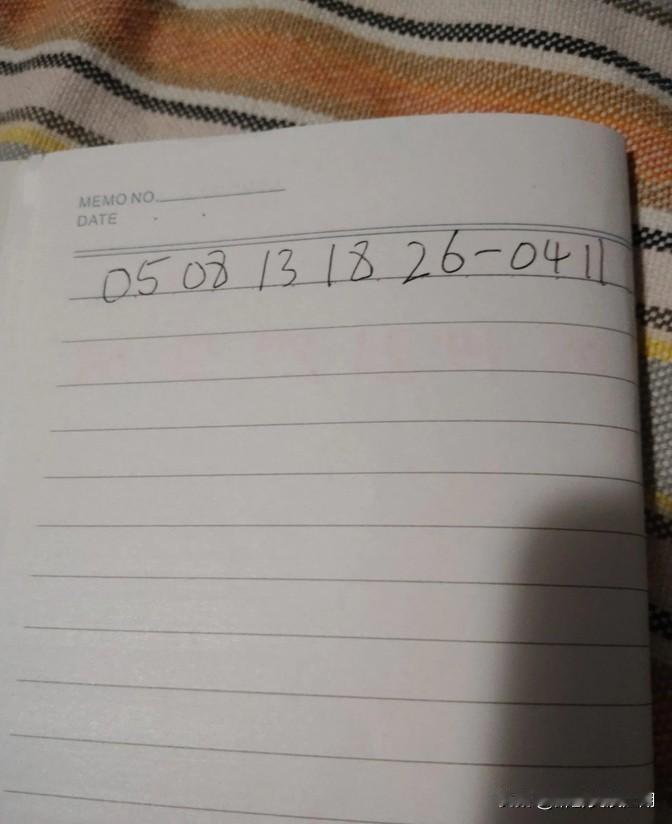 MEMO NO.
DATE
05 08 13 18 26-04 11